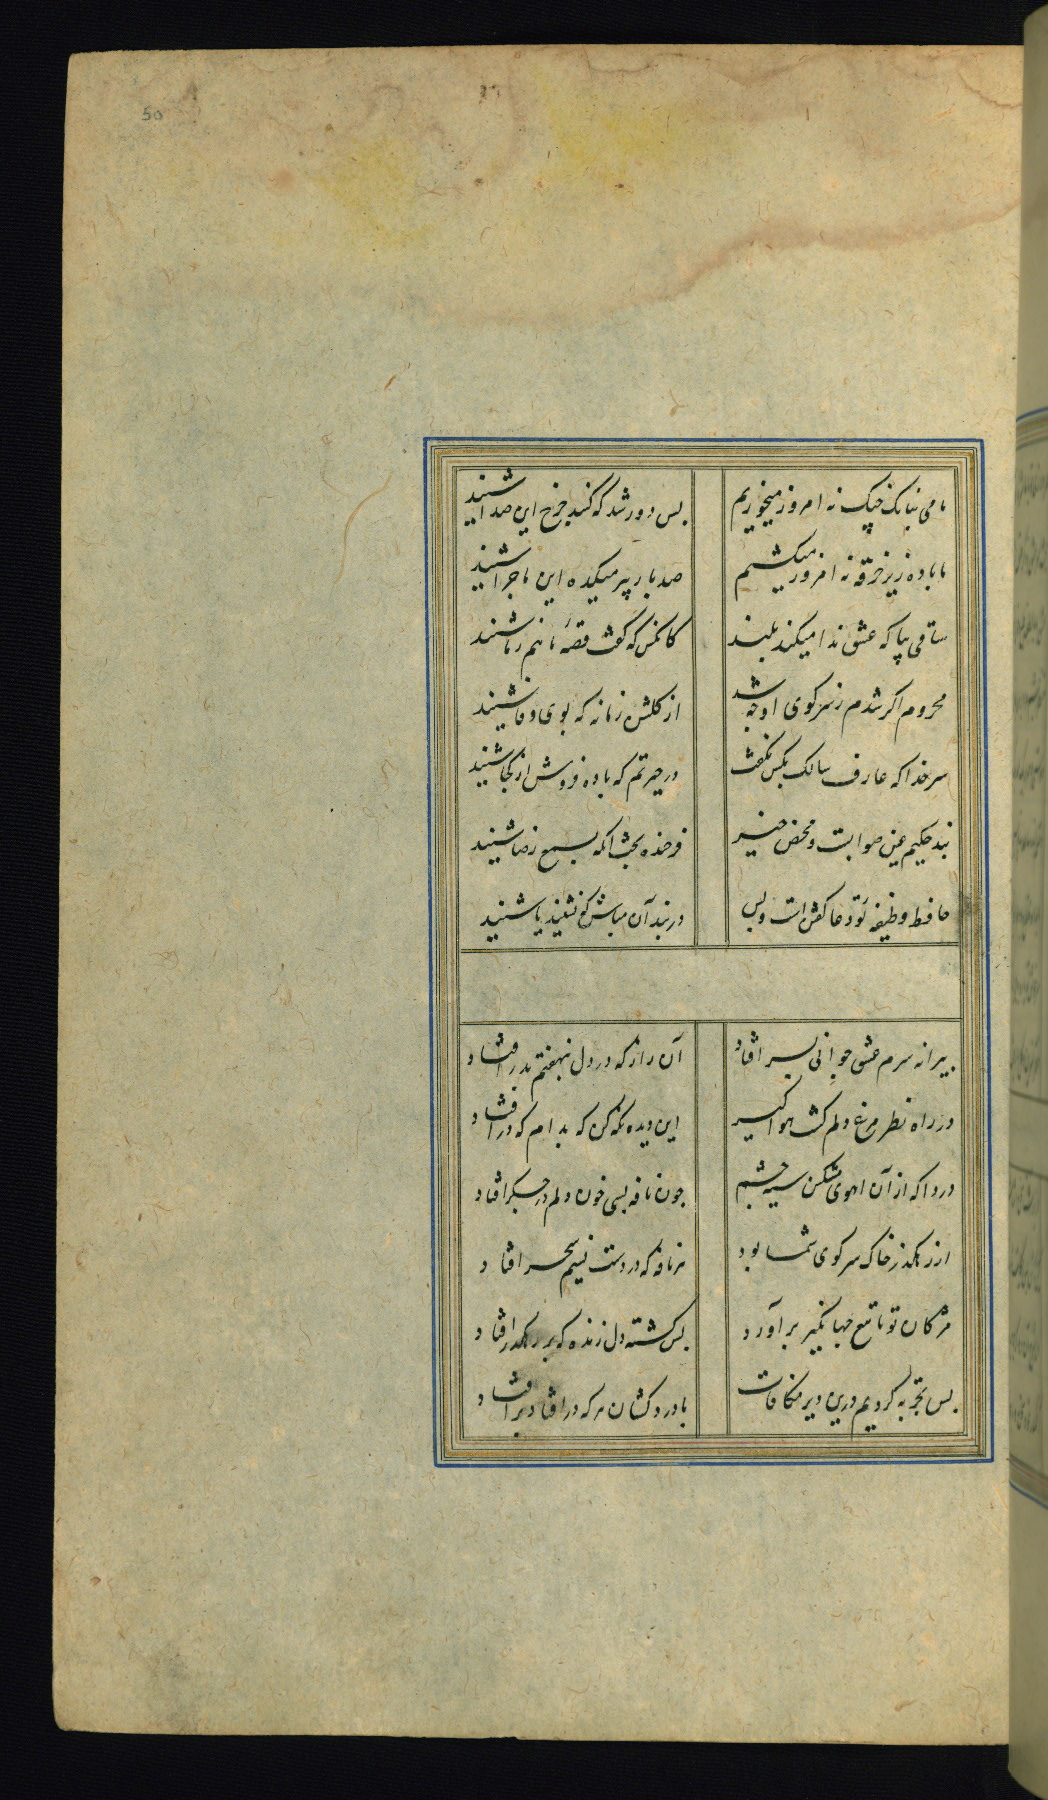 50
ما می ببانک چنک نه امروز میخوریم بس دور شد که کنبد چرخ این صدا شنید
ما باده زیر خرقه نه امروز میکشیم صد بار پیر میکده این ماجرا شنید
ساقی بیا که عشق ندا میکند بلند کانکس که کفت قصهٔ ما هم ز ما شنید
محروم اکر شدم ز سر کوی او چه شد از کلشن زمانه که بوی وفا شنید
سر خدا که عارف سالک بکس نکفت در حیرتم که باده فروش از کجا شنید
پند حکیم عین صوابست و محض خیر فرخنده بخت آنکه بسمع رضا شنید
حافظ وظیفه تو دعا کفتن است و بس در بند آن مباش که نشنید یا شنید
پیرانه سرم عشق جوانی بسر افتاد آن راز که در دل بنهفتم بدر افتاد
در راه نظر مرغ دلم کشت هوا کیر ای دیده نکه کن که بدام که در افتاد
دردا که از آن اهوی مشکین سیه چشم چون نافه بسی خون دلم در جکر افتاد
از رهکذر خاک سر کوی شما بود هر نافه که در دست نسیم سحر افتاد
مژکان تو تا تیغ جهانکیر بر آورد بس کشته دل زنده که بر رهکذر افتاد
بس تجربه کردیم درین دیر مکافات با درد کشان هر که در افتاد بر افتاد